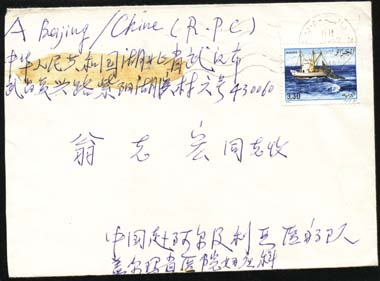 A Beijing/Chine (R.P.C)
中华人民共和国湖北省武汉市
武昌 紫阳湖 村六号430060
翁志宏 同志收
中国赴阿尔及利亚医疗队
省医院妇产科
الجزائر
3,30